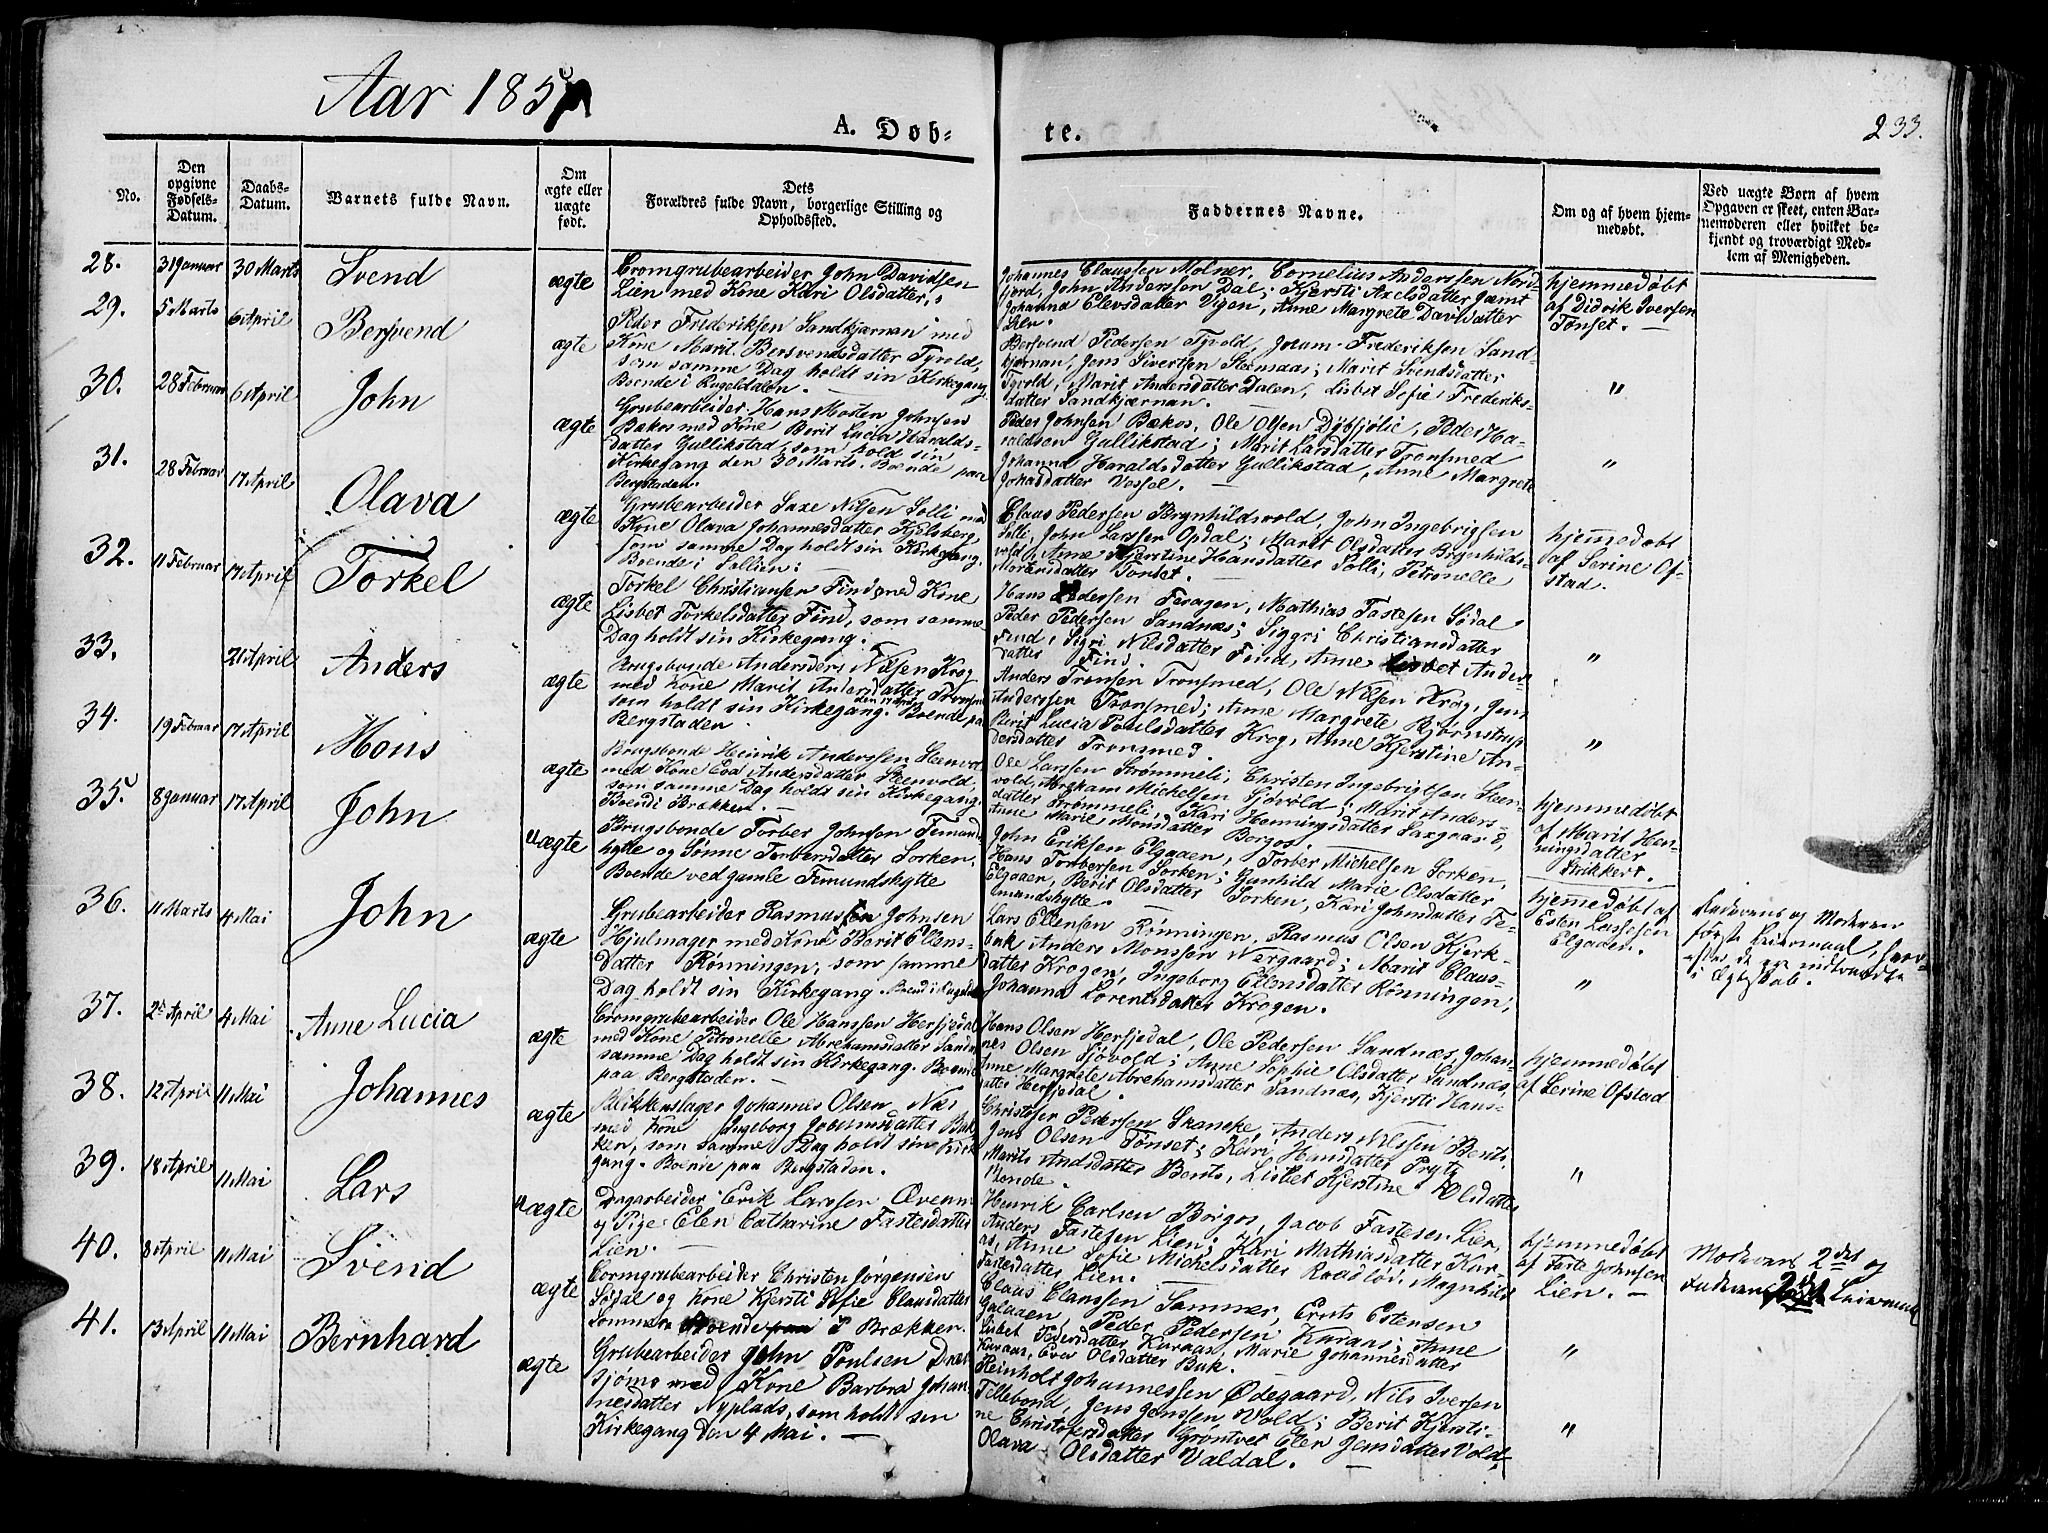 Aar 185
A. Døb-
te.
233.
No.
Den opgivne Fødsels-Datum.
Daabs-Datum.
Barnets fulde Navn.
Om ægte eller uægte født.
Dets Forældres fulde Navn, borgerlige Stilling og Opholdssted.
Faddernes Navne.
Om og af hvem hjem-medøbt.
Ved uægte Børn af hvem
Opgaven er skeet, enten Bar-
nemøderen eller hvilket be-
kjendt og troværdigt Med-
lem af Menigheden.
28. 31 Januar 30 Marts Svend ægte
Cromgrubearbeider John Davidsen
Lien med Kone Kari Olsdatter.
Johannes Claussen Molner, Cornelius Anderssen Nord-
fjord, John Anderssen Dal; Kjersti Axelsdatter Jæmt
Johanna Elevsdatter Vigen, Anne Margrete Davidsdatter
Lien.
hjemmedøbt
af Didrik Iversen
Tønset.
29. 5 Marts 6 April Bersvend ægte
Peder Frederiksen Sandkjærnan med
Kone Marit Bersvendsdatter Tyvold,
som samme Dag holdt sin Kirkegang.
Boende i Rugeldalen.
Bersvend Pedersen Tyvold, Jocum Frederiksen Sand-
kjærnan, Jens Sivertsen Steensaas; Marit Svendsdatter
Tyvold, Marit Andersdatter Dalen, Lisbet Sofie Frederiks-
datter Sandkjærnan.
"
30. 28 Februar 6 April John ægte
Grubearbeider Hans Morten Johnsen
Bækos med Kone Berit Lucia Haralds-
datter Gullikstad, som hold sin
Kirkegang den 30 Marts. Boende paa
Bergstaden.
Peder Johnsen Bækos, Ole Olsen Dybfjølie, Peder Ha-
raldsen Gullikstad; Marit Larsdatter Tronsmed
Johanna Haraldsdatter Gullikstad, Anne Margrete
Johnsdatter Vessel.
"
31. 28 Februar 17 April Olava ægte
Grubearbeider Saxe Nilsen Solli med
Kone Olava Johannesdatter Kjelsberg,
som samme Dag holdt sin Kirkegang.
Boende i Sollien.
Claus Pedersen Brynhildsvold, John Ingebrigtsen
Solli, John Larssen Opdal; Marit Olsdatter Brynhilds-
vold, Anne Kjerstine Hansdatter Solli, Petronelle
Mortensdatter Tønset.
hjemmedøbt
af Serine Of-
stad.
32. 11 Februar 17 April Torkel ægte
Torkel Christiansen Find med Kone
Lisbet Torkelsdatter Find, som samme
Dag holdt sin Kirkegang.
Hans Pedersen Feragen, Mathias Fastesen Sødal
Peder Pedersen Sandnæs; Siggri Christiansdatter
Find, Sigri Nilsdatter Find, Anne Lisbet Anders-
datter Find.
"
33. 21 April Anders ægte
Brugsbonde Anders Nilsen Krog
med Kone Marit Andersdatter Tronsmed
som holdt sin Kirkegang. Boende paa
Bergstaden.
Anders Tronsen Tronsmed, Ole Nilsen Krog, Jens
Anderssen Tronsmed; Anne Margrete Bjørnstrup
Berit Lucia Poulsdatter Krog, Anne Kjerstine An-
dersdatter Tronsmed.
"
34. 19 Februar 17 April Mons ægte
Brugsbonde Henrik Anderssen Steenvold
med Kone Eva Andersdatter Steenvold,
som samme Dag holdt sin Kirkegang.
Boende i Brækken.
Ole Larssen Strømmeli, Christen Ingebrigtsen Steen-
vold, Abraham Michelsen Sjøvold; Marit Anders-
datter Strømmeli, Kari Henningsdatter Saxgaard,
Anne Marie Monsdatter Borgos.
hjemmedøbt
af Marit Hen-
ningsdatter
Strikkert.
35. 8 Januar 17 April John uægte
Brugsbonde Torber Johnsen Femunds-
hytte og Sønne Torbersdatter Sorken.
Boende ved gamle Femundshytte
John Eriksen Elgaaen, Torber Michelsen Sorken,
Hans Torbersen Sorken; Gunhild Marie Olsdatter
Elgaaen, Berit Olsdatter Sorken, Kari Johnsdatter Fe-
mundshytte.
hjemmedøbt af
Esten Lassesen
Elgaaen.
Faderens og Moderens
første Leiermaal, hvor-
efter de ere indtraadte
i Ægteskab.
36. 11 Marts 4 Mai John ægte
Grubearbeider Rasmus Johnsen
Hjulmager med Kone Berit Ellens-
datter Rønningen, som samme
Dag holdt sin Kirkegang. Boende i Rugeldal
Lars Ellensen Rønningen, Rasmus Olsen Kjerk-
buk, Anders Monssen Nergaard; Marit Claus-
datter Krogen, Ingeborg Ellensdatter Rønningen,
Johanna Lorentsdatter Krogen.
"
37. 2 April 4 Mai Anne Lucia ægte
Cromgrubearbeider Ole Hanssen Herfjedal
med Kone Petronelle Abrahamsdatter Sandnæs
samme Dag holdt sin Kirkegang. Boende
paa Bergstaden.
Hans Olsen Herfjedal, Ole Pedersen Sandnæs, Johan-
nes Olsen Sjøvold; Anne Sophie Olsdatter Sandnæs,
Anne Margrete Abrahamsdatter Sandnæs, Kjersti Hans-
datter Herfjedal.
hjemmedøbt
af Serine Ofstad
38. 12 April 11 Mai Johannes ægte
Blikkenslager Johannes Olsen Næs
med Kone Ingeborg Jocumsdatter Bak-
ken, som samme Dag holdt sin Kirke-
gang. Boende paa Bergstaden.
Christofer Pedersen Skancke, Anders Nilssen Bents,
Jens Olsen Tønset; Kari Hansdatter Prytz
Marit Andsdatter Bents, Lisbet Kjerstine Olsdatter
"
39. 18 April 11 Mai Lars uægte
Dagarbeider Erik Larssen Øvenm
og Pige Elen Catharine Fastesdatter
Lien.
Henrik Carlsen Borgos, Jacob Fastesen Lien,
Anders Fastesen Lien; Kari Mathiasdatter Kur-
as, Anne Sofie Michelsdatter Rødslød, Magnhild
Fastesdatter Lien.
hjemmedøbt
af Faste Johnsen
Lien.
Moderens 2det og
Faderens 2det Leiermaal
40. 8 April 11 Mai Svend ægte
Cormgrubearbeider Christen Jørgensen
Sødal og Kone Kjersti Sofie Clausdatter
Sommer. Boende i Brækken.
Claus Claussen Sommer, Ernts Estensen
Galaaen, Peder Pedersen Kuraas; Anne
Lisbet Pedersdatter Kuraas, Marie Johannesdatter
Kuraas, Eva Olsdatter Buk.
"
41. 13 April 11 Mai Bernhard ægte
Grubearbeider John Poulsen Dræ-
sjømo med Kone Barbra Johan-
nesdatter Nyplads, som holdt sin
Kirkegang den 4 Mai.
Reinholt Johannessen Ødegaard, Nils Iversen
Tillebond, Jens Jenssen Vold; Berit Kjersti-
ne Christofersdatter Grøntvet Elen Jensdatter Vold,
Olava Olsdatter Valdal.
"